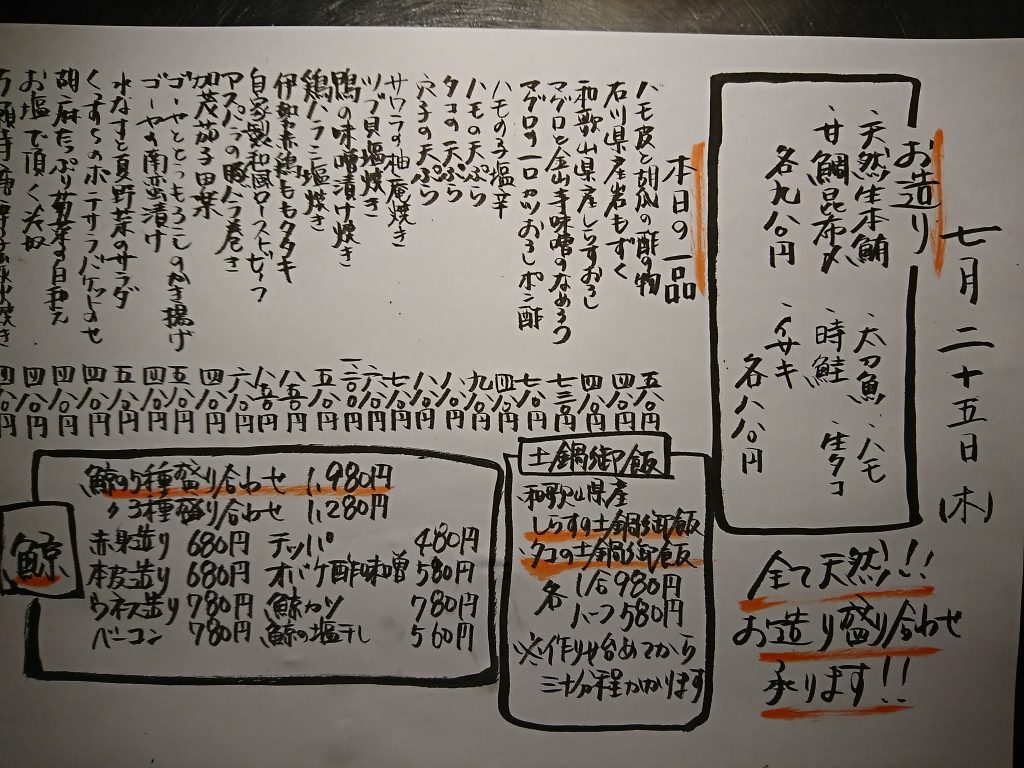 七月二十五日(木)
お造り
・天然生本鮪 ・太刀魚 ・ハモ
・甘鯛昆布〆 ・時鮭 ・生タコ
各九八〇円 ・イサキ
各八八〇円
全て天然!!
お造り盛り合わせ
承ります!!
本日の一品
ハモ皮と胡瓜の酢の物 五八〇円
石川県産岩もずく 四八〇円
和歌山県産しらすおろし 四八〇円
マグロと金山寺味噌のなめろう 七三〇円
マグロの一口カツおろしポン酢 七八〇円
ハモの子塩辛 四八〇円
ハモの天ぷら 九八〇円
タコの天ぷら 八八〇円
穴子の天ぷら 八八〇円
サワラの柚庵焼き 七八〇円
ツブ貝塩焼き 六八〇円
鴨の味噌漬け焼き
鶏ハラミ塩焼き 五八〇円
伊勢赤鶏ももタタキ 八五〇円
自家製和風ローストビーフ 八五〇円
アスパラの豚バラ巻き 六八〇円
加茂茄子田楽 四八〇円
ゴーヤととうもろこしのかき揚げ 五八〇円
ゴーヤの南蛮漬け 四八〇円
水なすと夏野菜のサラダ 五八〇円
くずきりのポテサラバケットのせ 四八〇円
胡麻たっぷり 四八〇円
お塩で頂く冷奴 四八〇円
四八〇円
土鍋御飯
和歌山県産
しらすの土鍋御飯
タコの土鍋御飯
各 1合980円
ハーフ580円
※作り始めてから
三十分程かかります
鯨
鯨の5種盛り合わせ 1,980円
〃3種盛り合わせ 1,280円
赤身造り 680円 テッパ 480円
本皮造り 680円 オバケ酢味噌 580円
ウネス造り 780円 鯨カツ 780円
ベーコン 780円 鯨の塩干し 560円